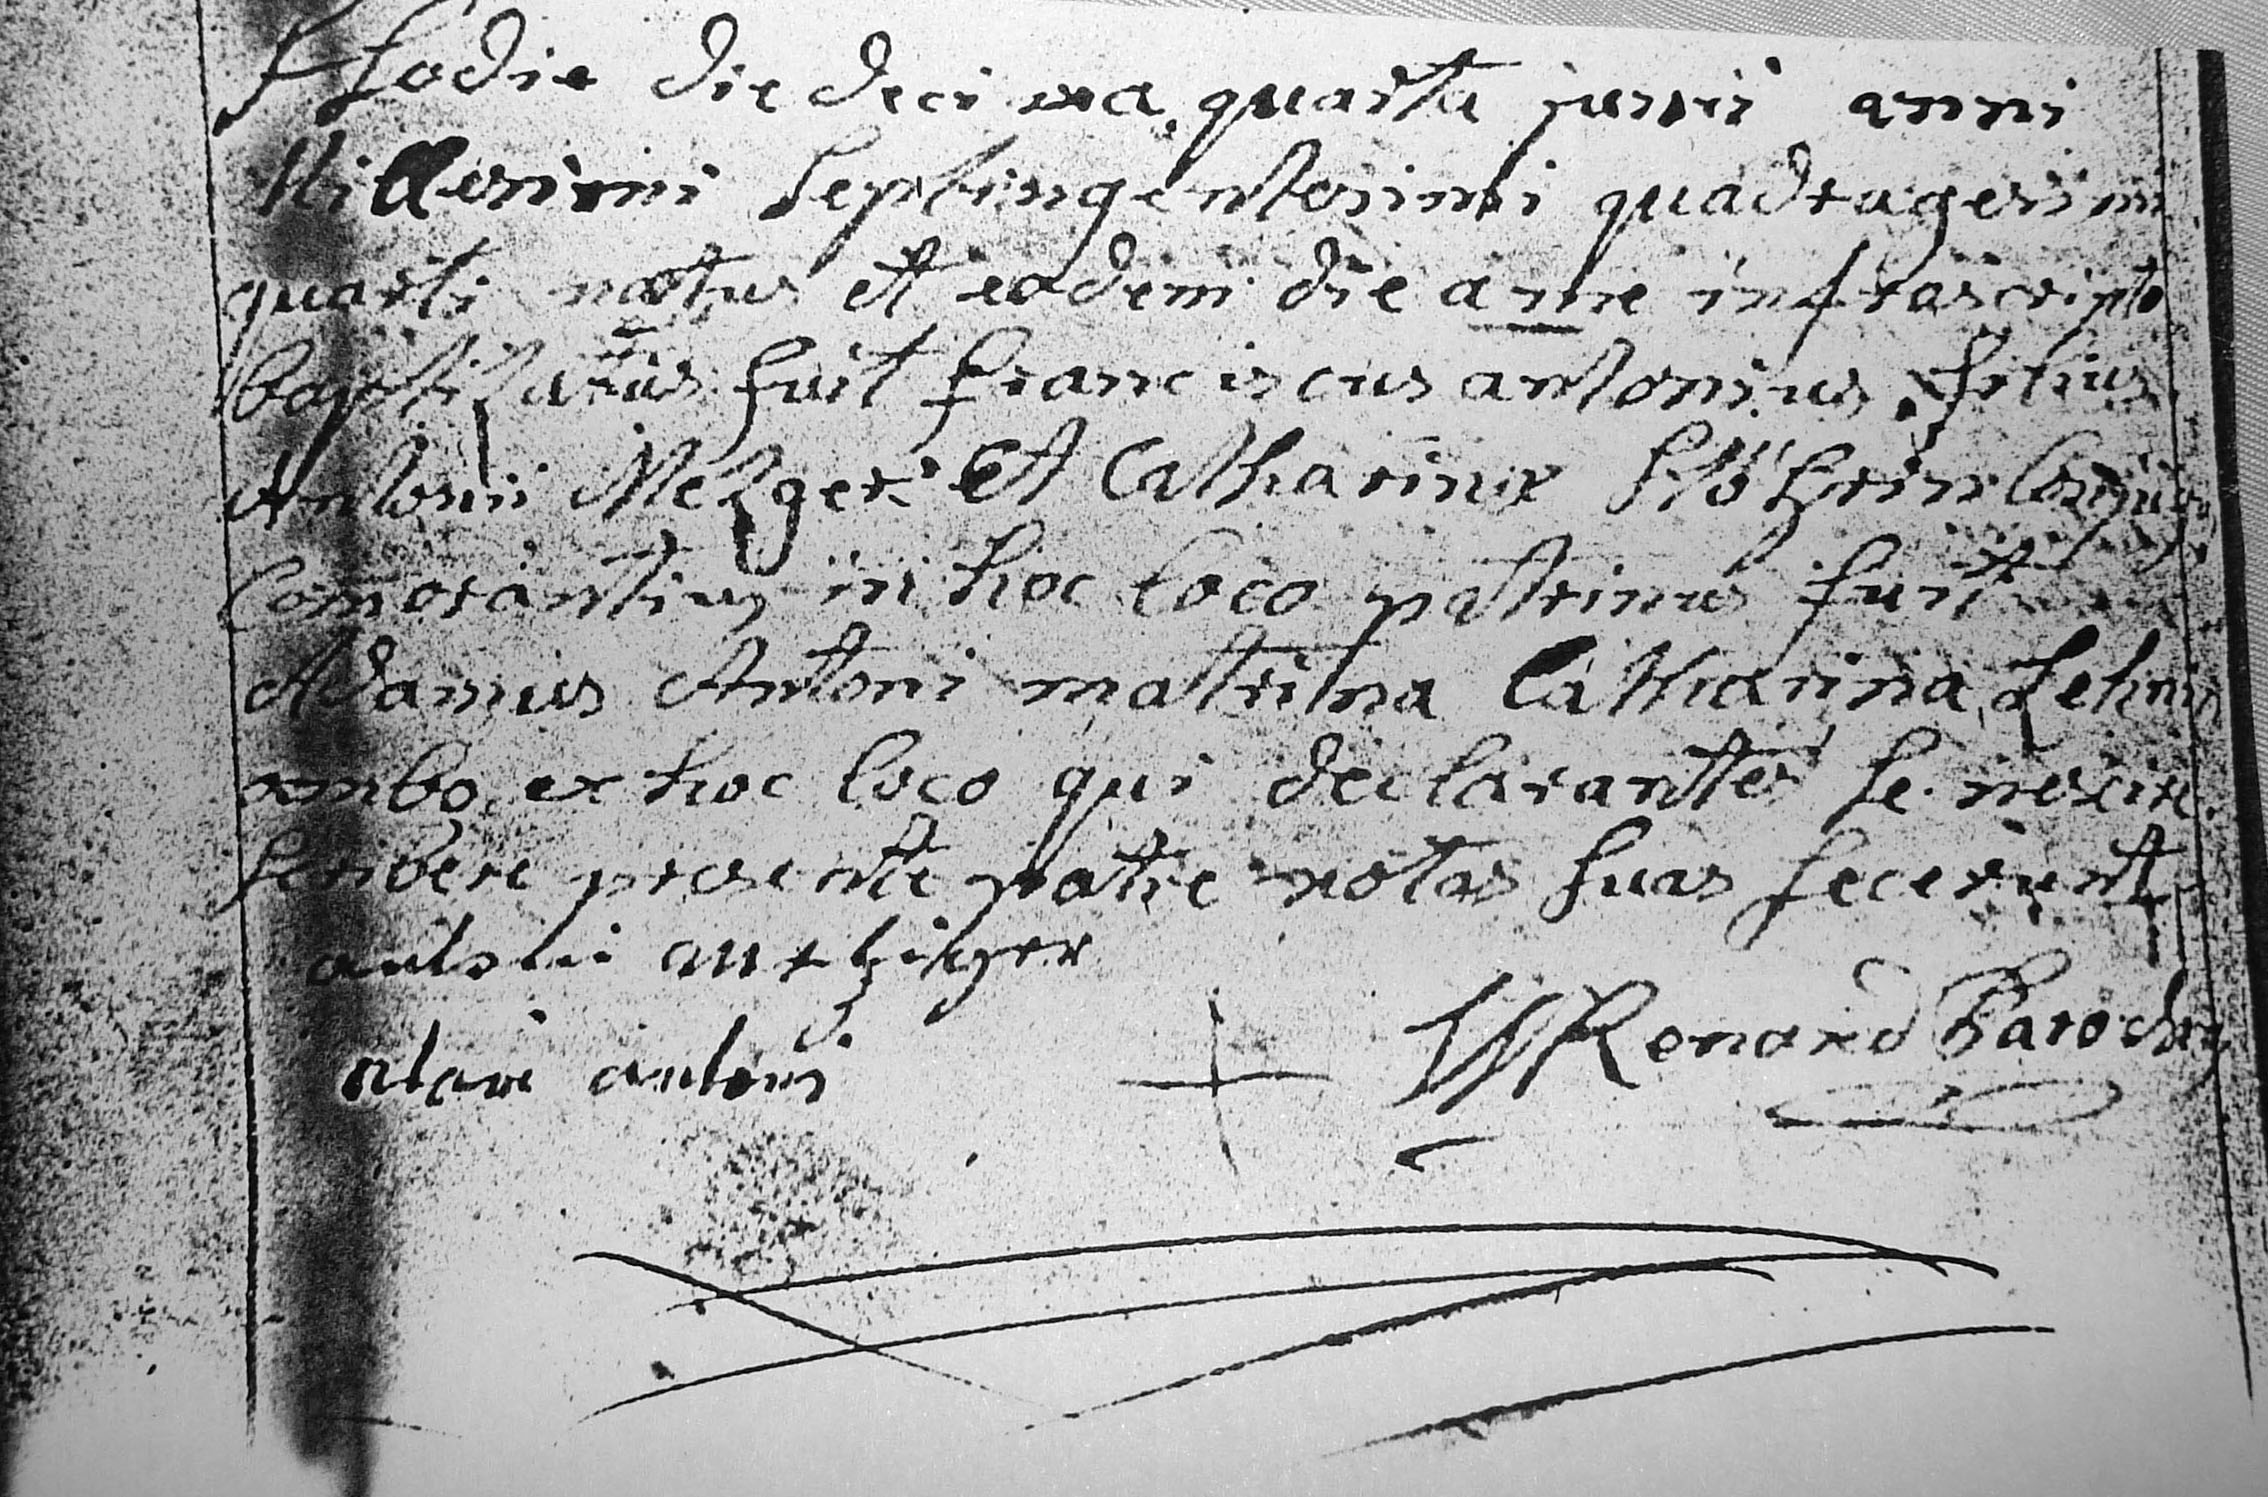 Hodie die decima quarta junii anni
Millesimi septingentesimi quadragesimi
quarti natus et eodem die a me infrascripto
baptisatus fuit franciscus antonius filius
Antonii Mezger et Catharinæ
Comorantium in hoc loco patrinus fuit
Adamus Antoni matrina Catharina
ambo ex hoc loco qui declarantes se nescire
scribere presente patre notas suas fecerunt
antoni metzger
adam antoni + Renard Parochus